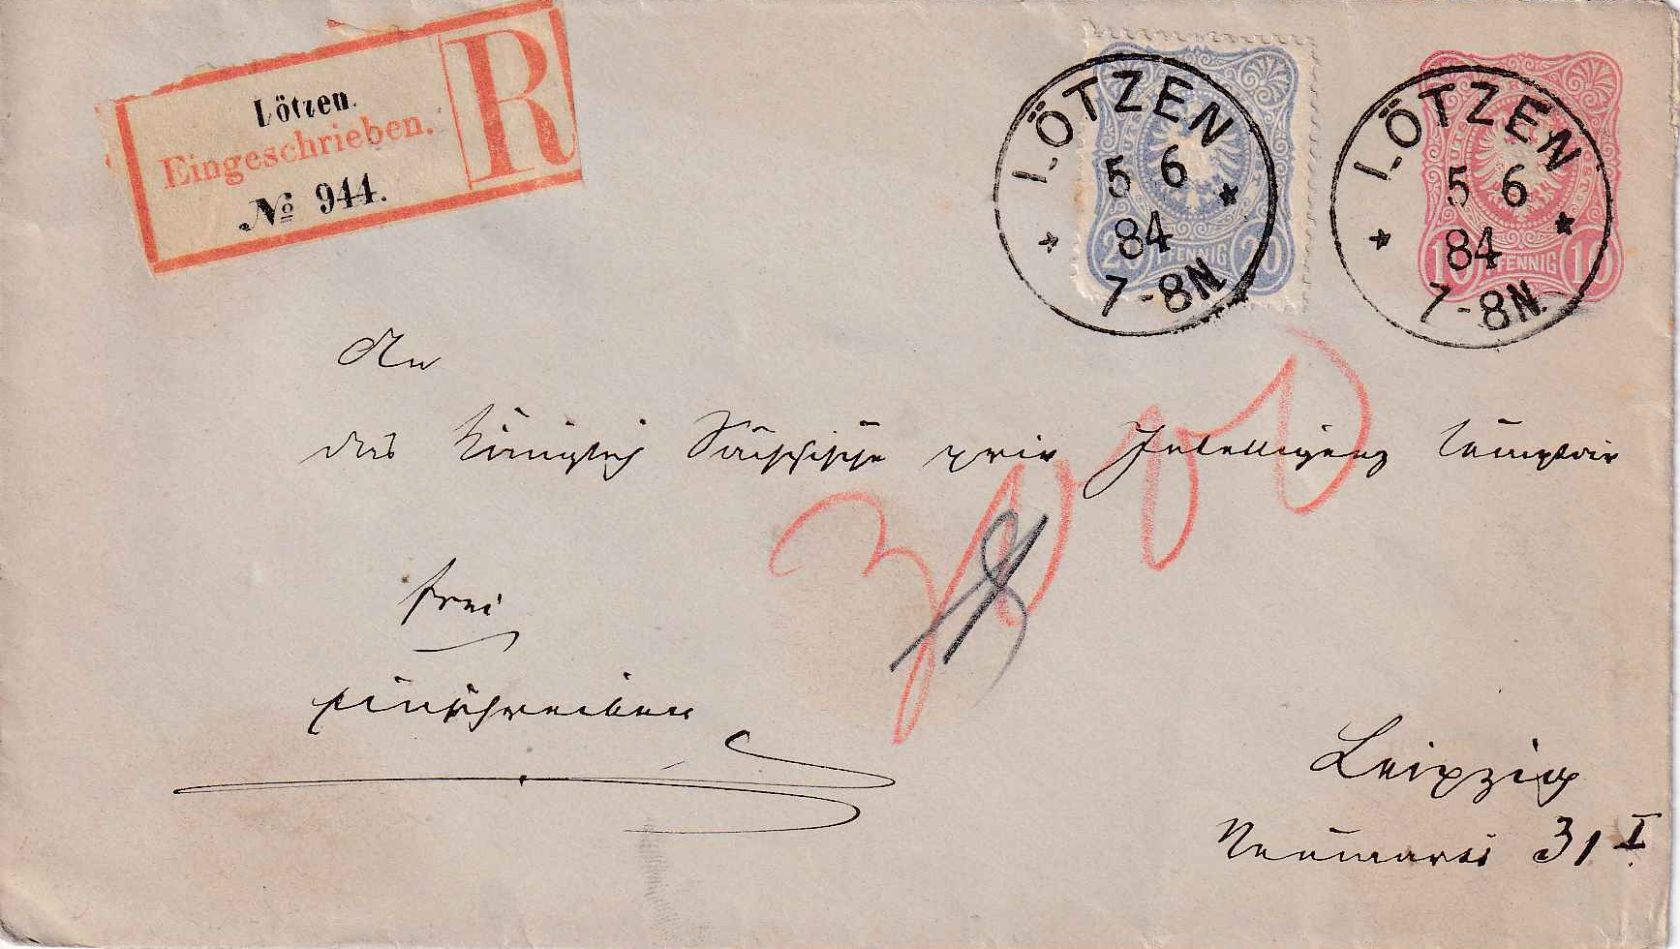 Lötzen.
Eingeschrieben.
№ 944.
R
LÖTZEN
5 6
84
7-8N
20 PFENNIG 20
LÖTZEN
5 6
84
7-8N
10 PFENNIG 10
An
das Königlich Sächsische priv Intelligenz Comptoir
frei
Einschreiben
Leipzig
Neumarkt 31 I